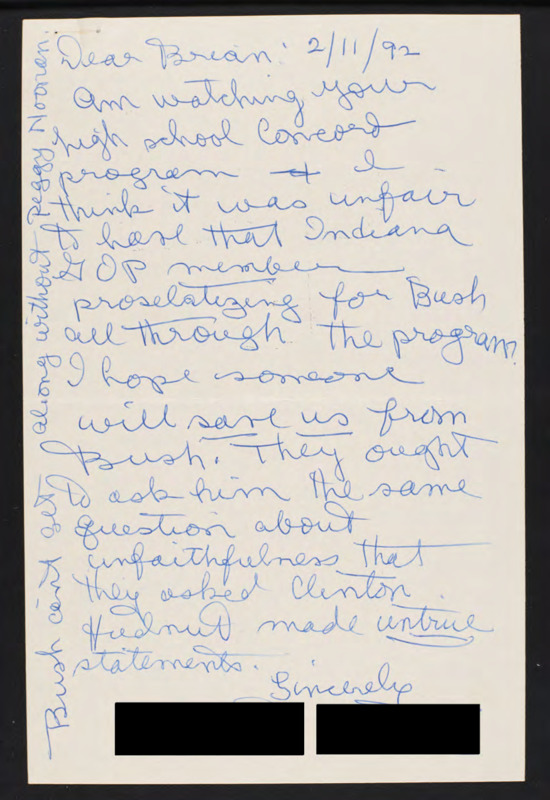 Dear Brian: 2/11/92
Am watching your
high school Concord
program & I
think it was unfair
to have that Indiana
GOP member
proselatizing for Bush
all through the program.
I hope someone
will save us from
Bush. They ought
to ask him the same
question about
unfaithfulness that
they asked Clinton.
Hudnut made untrue
statements.
Sincerely
Bush can't get along without Peggy Noonan.